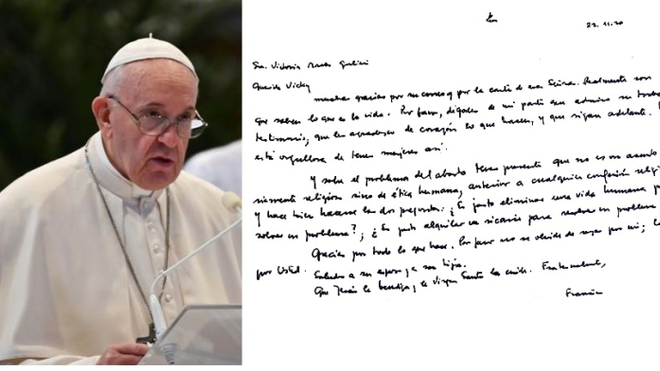 22.11.20
Sra. Victoria
Querida Vicky
muchas gracias por su correo y por la carta de esas Realmente son
que saben lo que es la vida. Por favor, dígales de mi parte que admiro su
testimonio; que les agradezco de corazón lo que hacen, y que sigan adelante.
está orgullosa de tener mujeres así.
Y sobre el problema del aborto tener presente que no es un asunto
religioso sino de ética humana, anterior a cualquier confesión
y hace bien hacerse las dos preguntas: ¿Es justo eliminar una vida humana
un problema?, ¿Es justo alquilar un sicario para resolver un problema
Gracias por todo lo que hace. Por favor no se olvide de rezar por mí;
por Usted. Saludos a su esposo y a sus hijos.
Que Jesús la bendiga y la Virgen Santa la cuide. Fraternalmente,
Francisco